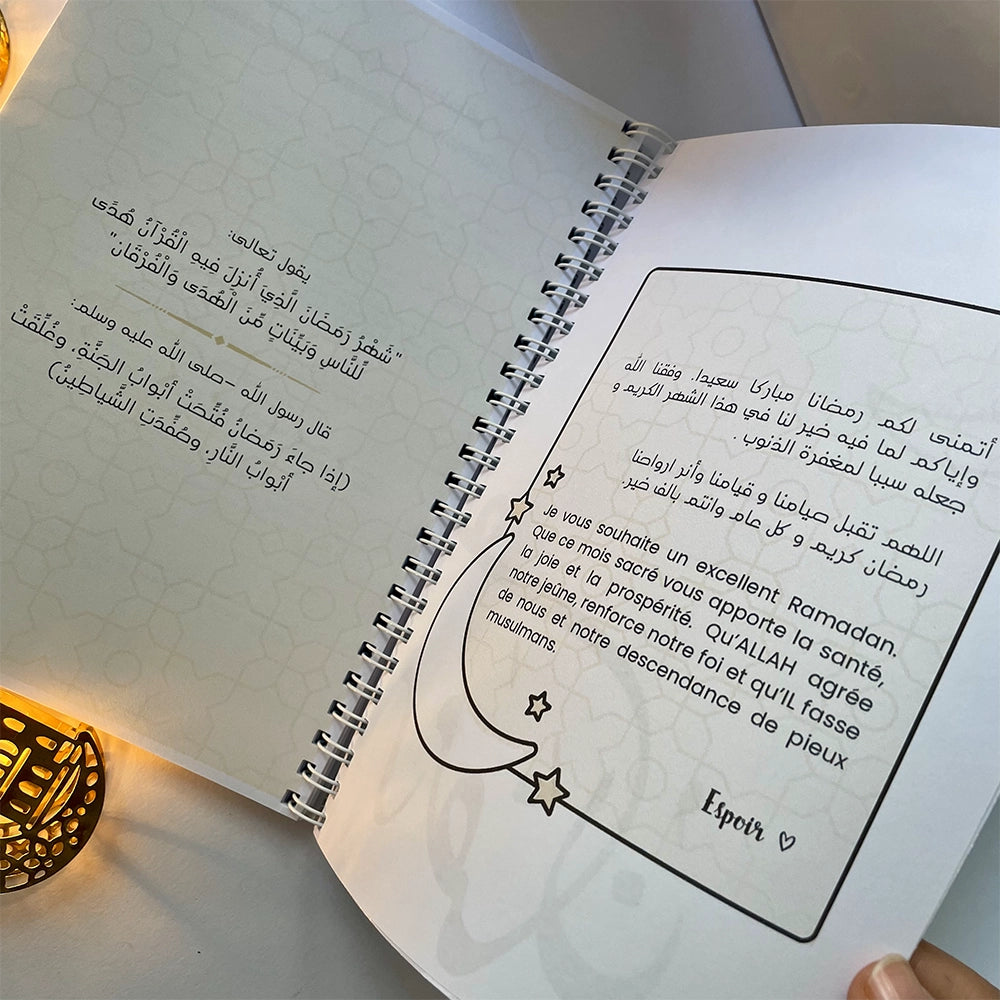 يقول تعالى:
"شَهْرُ رَمَضَانَ الَّذِيَ أُنزِلَ فِيهِ الْقُرْآنُ هُدًى
لِّلنَّاسِ وَبَيِّنَاتٍ مِّنَ الْهُدَى وَالْفُرْقَانِ"
قال رسول الله -صلى الله عليه وسلم:
(إذا جاءَ رَمَضانُ فُتِّحَتْ أبْوابُ الجَنَّةِ، وغُلِّقَتْ
أبْوابُ النَّارِ، وصُفِّدَتِ الشَّياطِينُ)
أتمنى لكم رمضانا مباركا سعيدا. وفقنا الله
وإياكم لما فيه خير لنا في هذا الشهر الكريم و
جعله سببا لمغفرة الذنوب .
اللهم تقبل صيامنا و قيامنا وأنر ارواحنا
رمضان كريم و كل عام وانتم بالف خير.
Je vous souhaite un excellent Ramadan.
Que ce mois sacré vous apporte la santé,
la joie et la prospérité. Qu'ALLAH agrée
notre jeûne, renforce notre foi et qu'IL fasse
de nous et notre descendance de pieux
musulmans.
Espoir